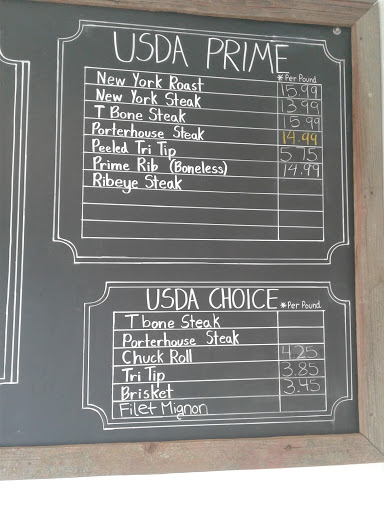 USDA PRIME
*Per Pound
New York Roast 15.99
New York Steak 13.99
T Bone Steak 15.99
Porterhouse Steak 14.99
Peeled Tri Tip 5.75
Prime Rib (Boneless) 14.99
Ribeye Steak
USDA CHOICE *Per Pound
T bone Steak
Porterhouse Steak
Chuck Roll 4.25
Tri Tip 3.85
Brisket 3.45
Filet Mignon